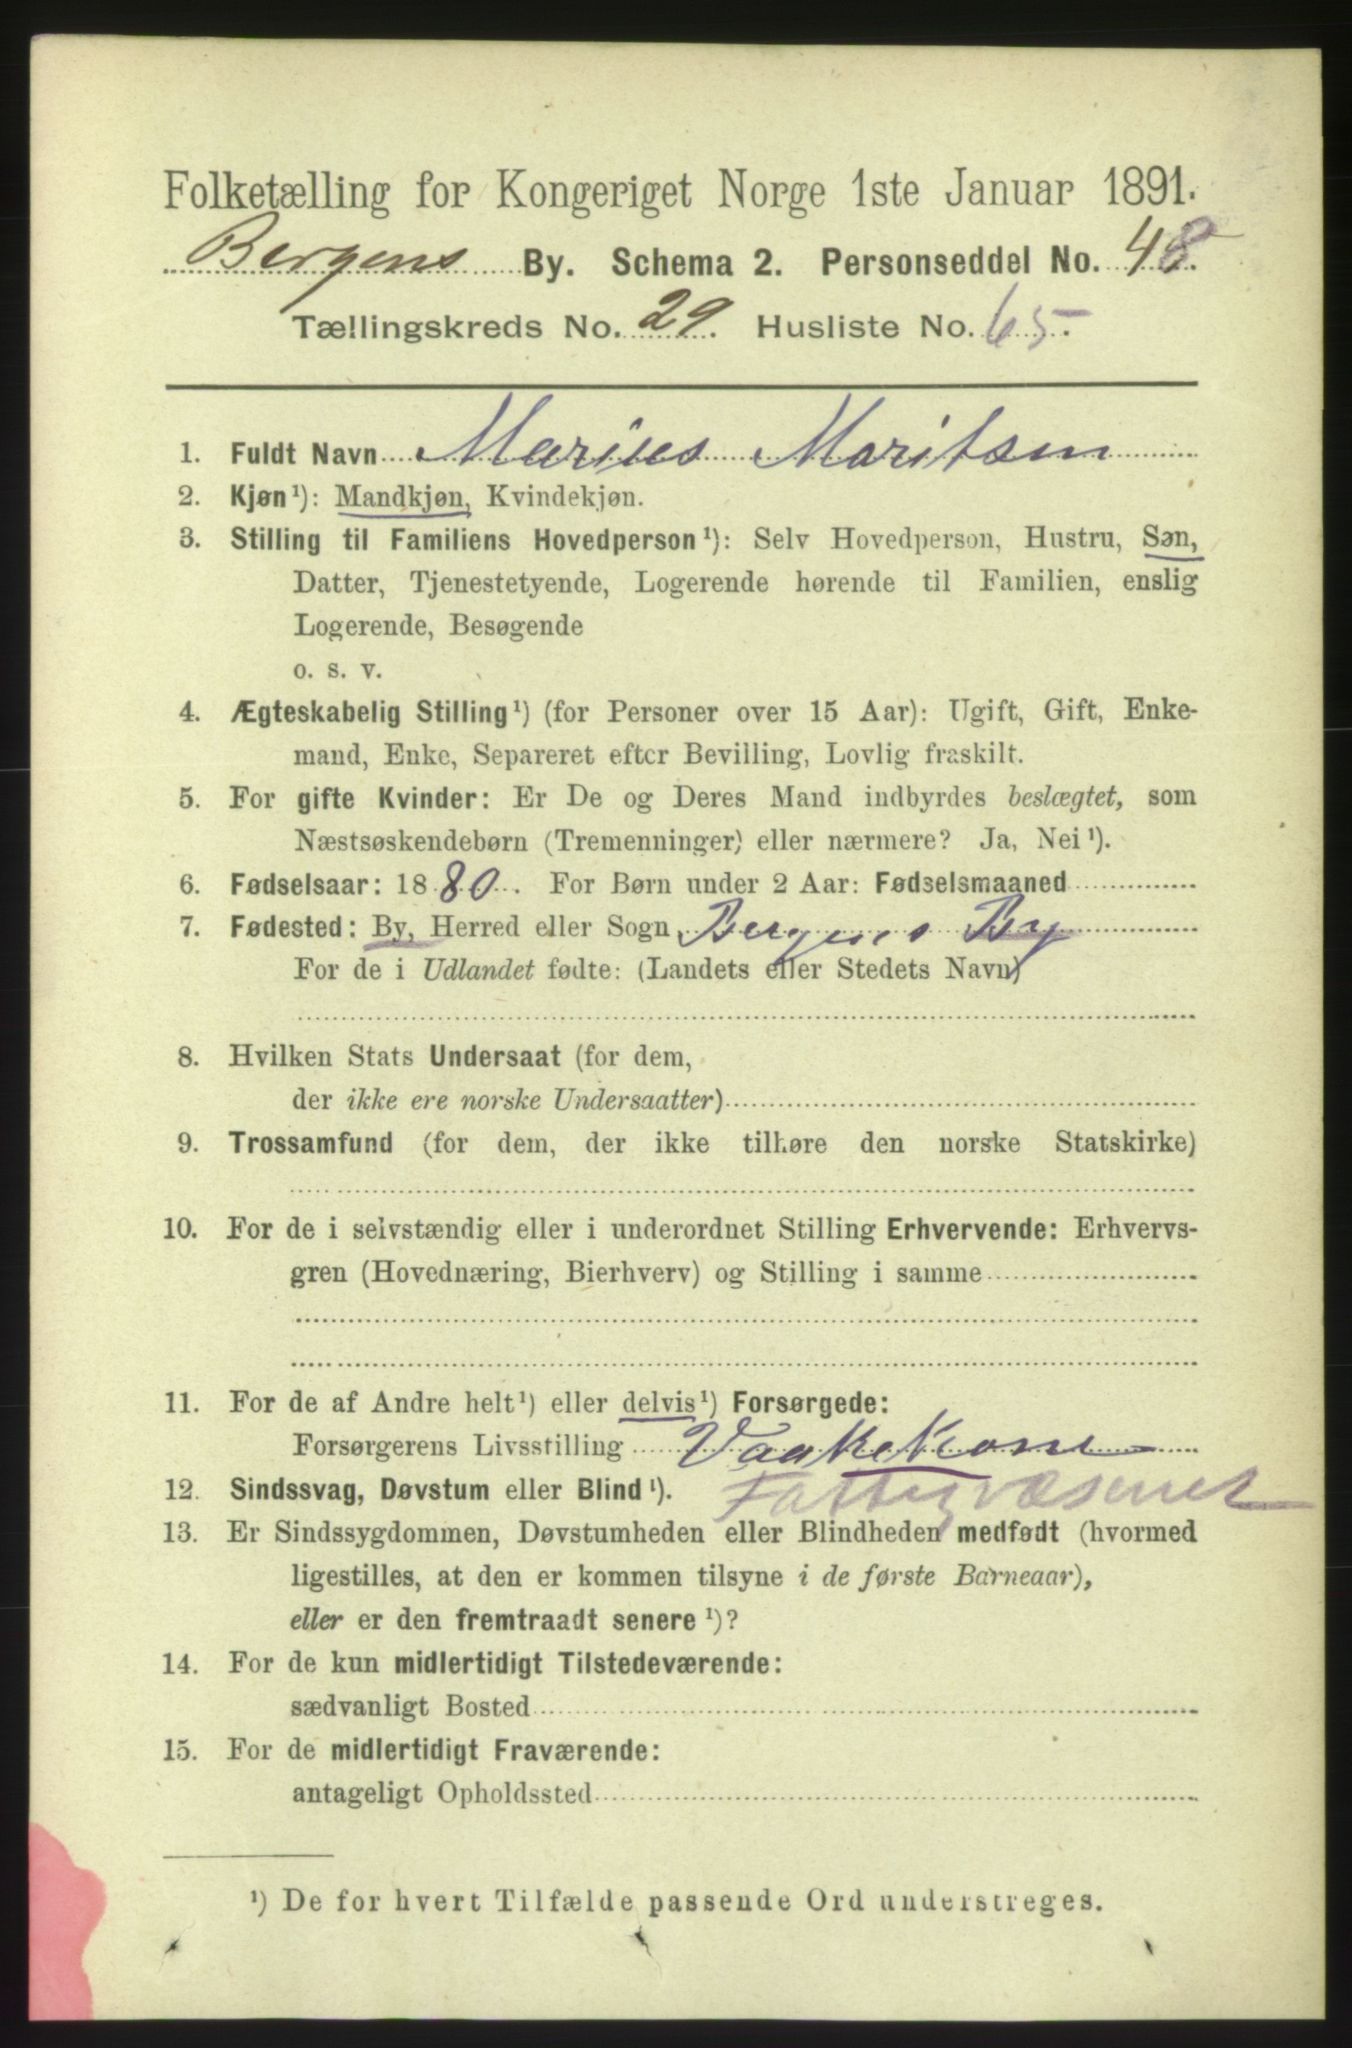 Folketælling for Kongeriget Norge 1ste Januar 1891.
Bergens By. Schema 2. Personseddel No. 48.
Tællingskreds No. 29. Husliste No. 65.
1. Fuldt Navn Marius Maritsen
2. Kjøn¹): Mandkjøn, Kvindekjøn.
3. Stilling til Familiens Hovedperson¹): Selv Hovedperson, Hustru, Søn,
Datter, Tjenestetyende, Logerende hørende til Familien, enslig
Logerende, Besøgende
o. s. v.
4. Ægteskabelig Stilling¹) (for Personer over 15 Aar): Ugift, Gift, Enke-
mand, Enke, Separeret efter Bevilling, Lovlig fraskilt.
5. For gifte Kvinder: Er De og Deres Mand indbyrdes beslægtet, som
Næstsøskendebørn (Tremenninger) eller nærmere? Ja, Nei¹).
6. Fødselsaar: 1880. For Børn under 2 Aar: Fødselsmaaned
7. Fødested: By, Herred eller Sogn Bergens By
For de i Udlandet fødte: (Landets eller Stedets Navn)
8. Hvilken Stats Undersaat (for dem,
der ikke ere norske Undersaatter)
9. Trossamfund (for dem, der ikke tilhøre den norske Statskirke)
10. For de i selvstændig eller i underordnet Stilling Erhvervende: Erhvervs-
gren (Hovednæring, Bierhverv) og Stilling i samme
11. For de af Andre helt¹) eller delvis¹) Forsørgede:
Forsørgerens Livsstilling Vaakekone
12. Sindssvag, Døvstum eller Blind¹). Fattigvæsenet
13. Er Sindssygdommen, Døvstumheden eller Blindheden medfødt (hvormed
ligestilles, at den er kommen tilsyne i de første Barneaar),
eller er den fremtraadt senere¹)?
14. For de kun midlertidigt Tilstedeværende:
sædvanligt Bosted
15. For de midlertidigt Fraværende:
antageligt Opholdssted
¹) De for hvert Tilfælde passende Ord understreges.